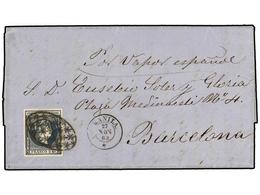 Por Vapor español
S. D. Eusebio Soler y Gloria
Plaza Medinaceli Nº 4.
Barcelona
MANILA
27
NOV
FRANCO